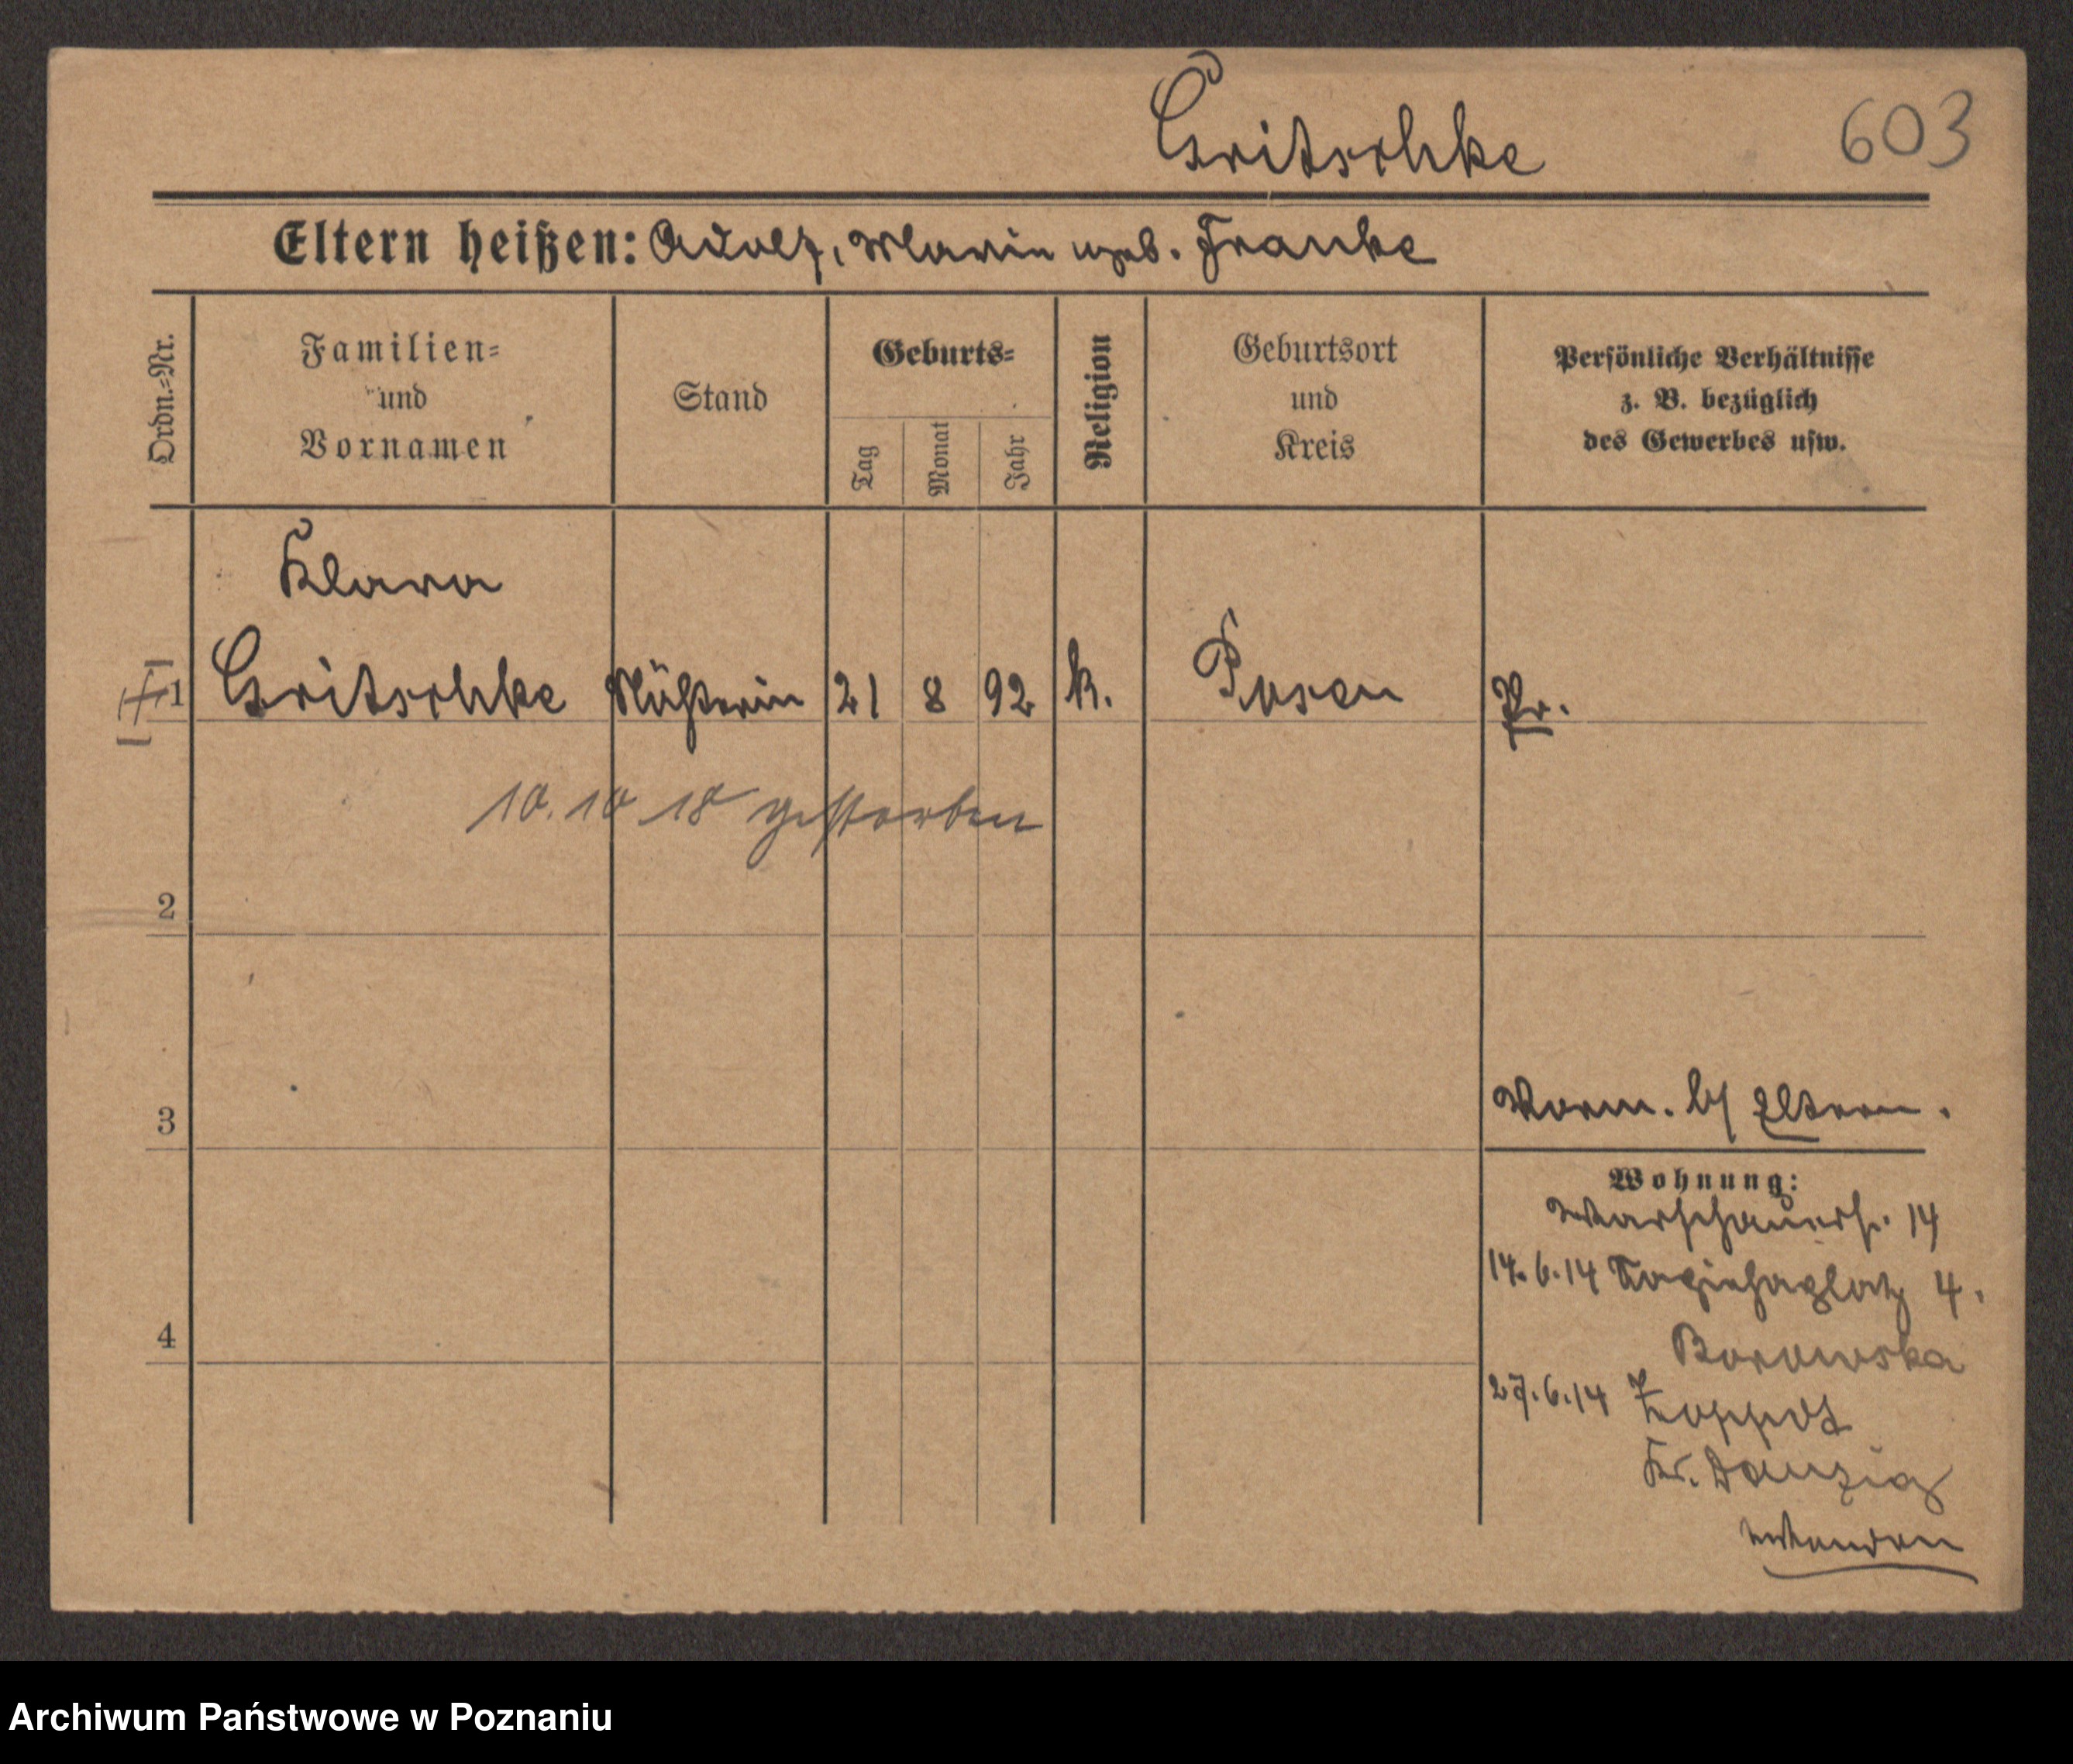 Gritschke
603
Eltern heißen: Adolf, Maria geb. Franke
Ordn.-Nr.
Familien-
und
Vornamen
Stand
Geburts-
Tag
Monat
Jahr
Religion
Geburtsort
und
Kreis
Persönliche Verhältnisse
z. B. bezüglich
des Gewerbes usw.
Klara
1 Gritschke Näherin 21 8 92 k. Posen Pr.
10.10 18 gestorben
2
3
Vorm. b/ Eltern.
Wohnung:
Warschauerstr. 14
14.6.14 Sapiehaplatz 4.
4
Borowska
27.6.14 Zoppot
Kr. Danzig